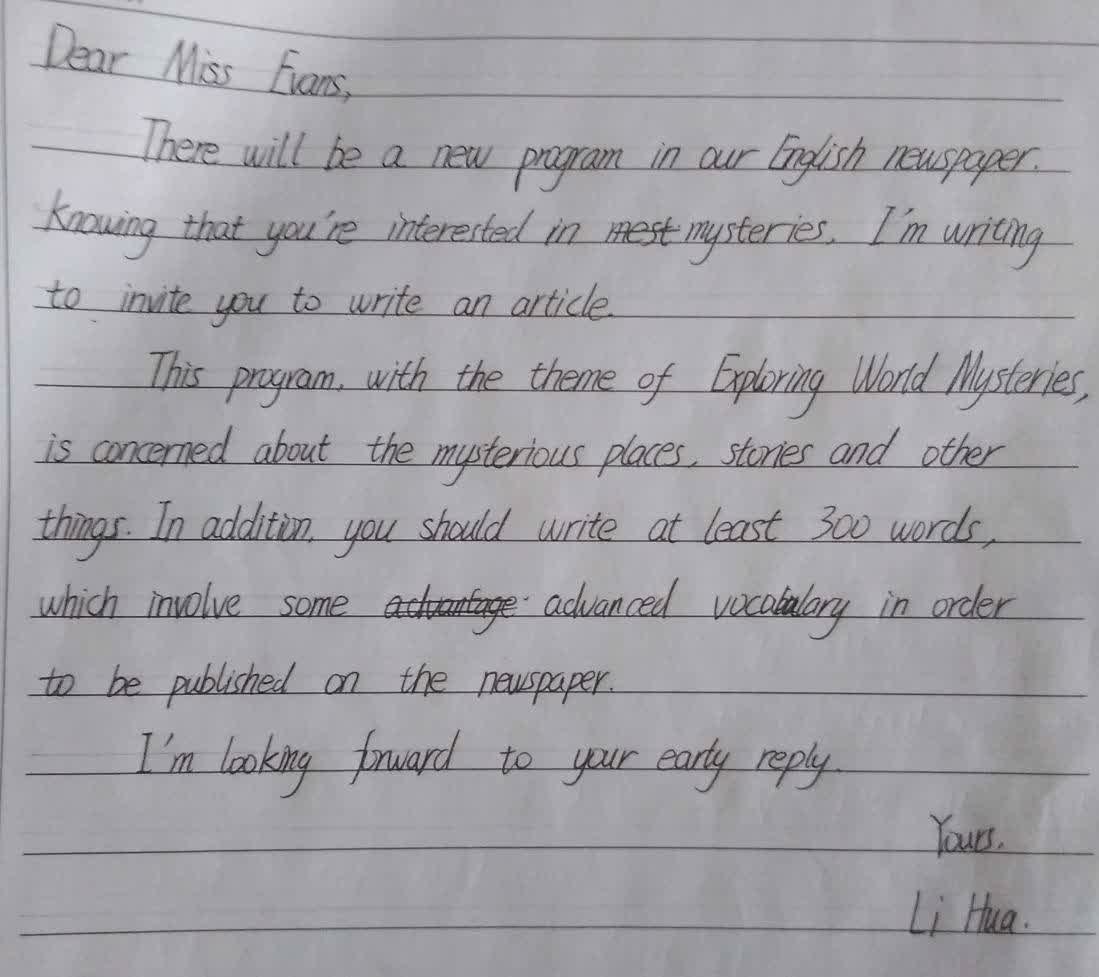 Dear Miss Evans,
There will be a new program in our English newspaper.
Knowing that you're interested in mest mysteries, I'm writing
to invite you to write an article.
This program, with the theme of Exploring World Mysteries,
is concerned about the mysterious places, stories and other
things. In addition, you should write at least 300 words,
which involve some advantage advanced vocabulary in order
to be published on the newspaper.
I'm looking forward to your early reply.
Yours,
Li Hua.